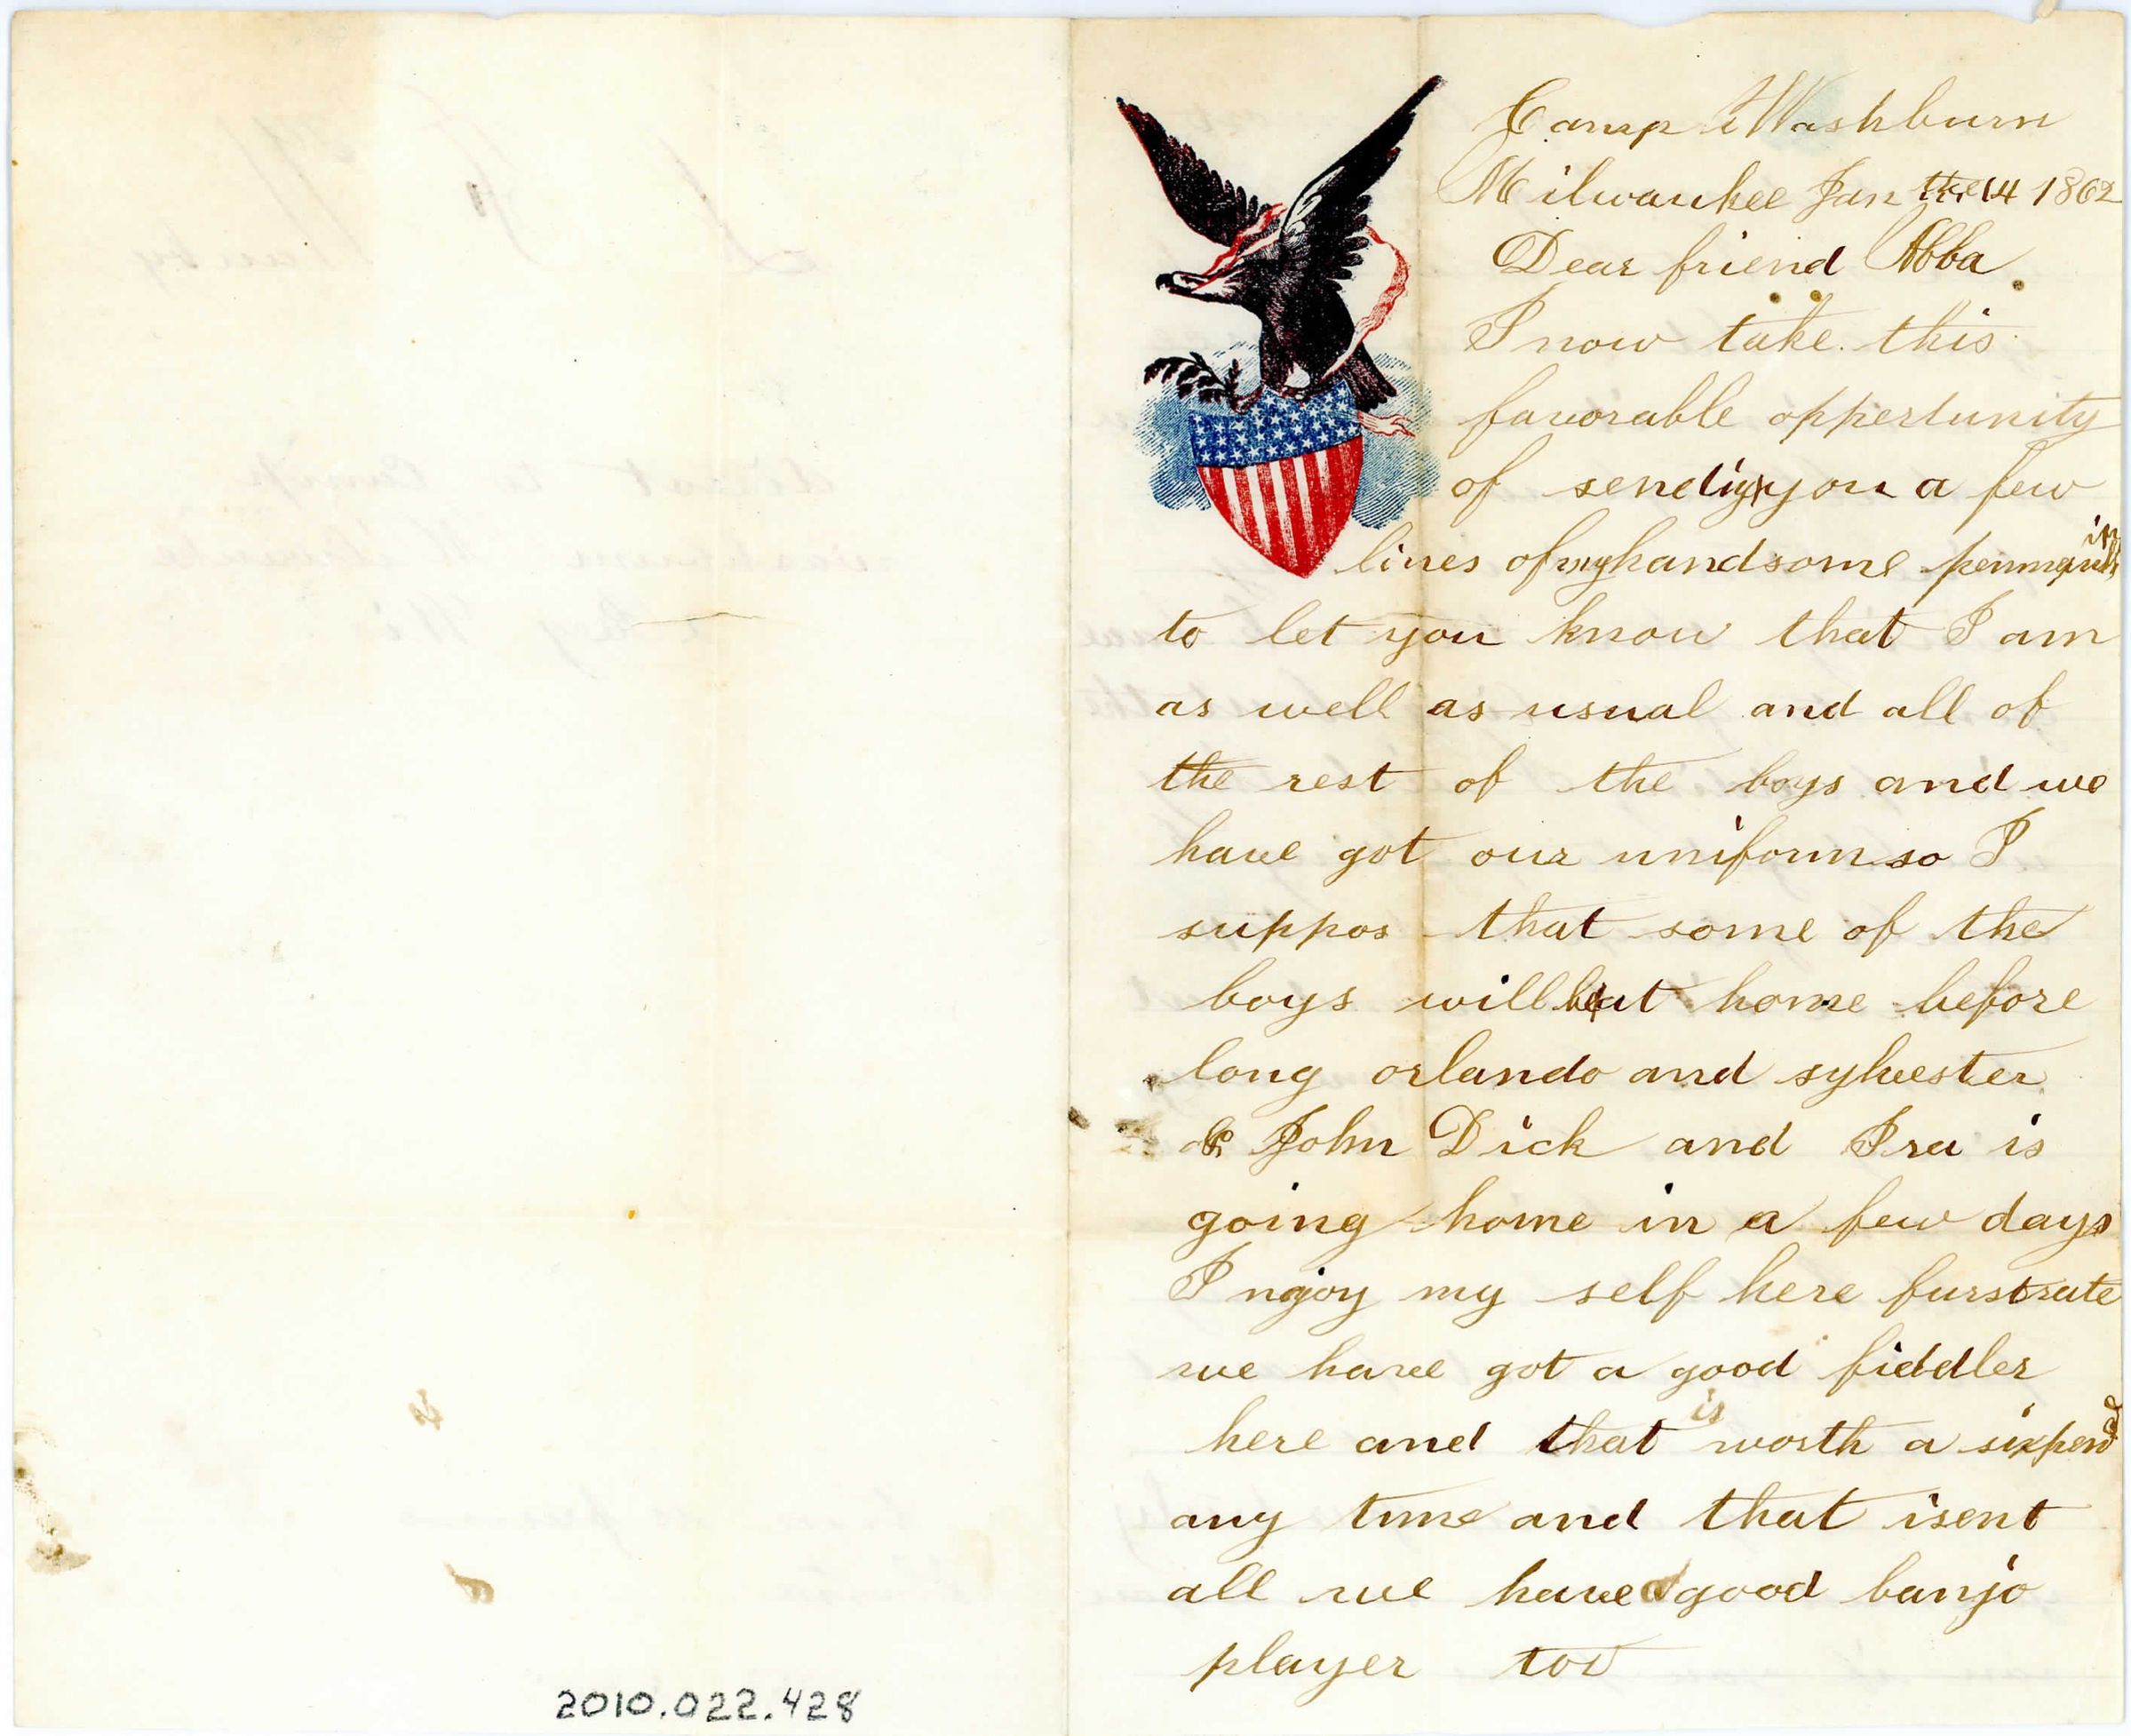 Camp Washburn
Milwaukee Jan the 14 1862
Dear friend Abba
I now take this
favorable oppertunity
of sending you a few
lines of my handsome penmanin
to let you know that I am
as well as usual and all of
the rest of the boys and we
have got our uniform so I
suppos that some of the
boys will be at home before
long orlando and sylvester
& John Dick and Ira is
going home in a few days
I njoy my self here furstrate
we have got a good fiddler
here and that is worth a sixpend
any time and that isent
all we have a good banjo
player too
2010.022.428